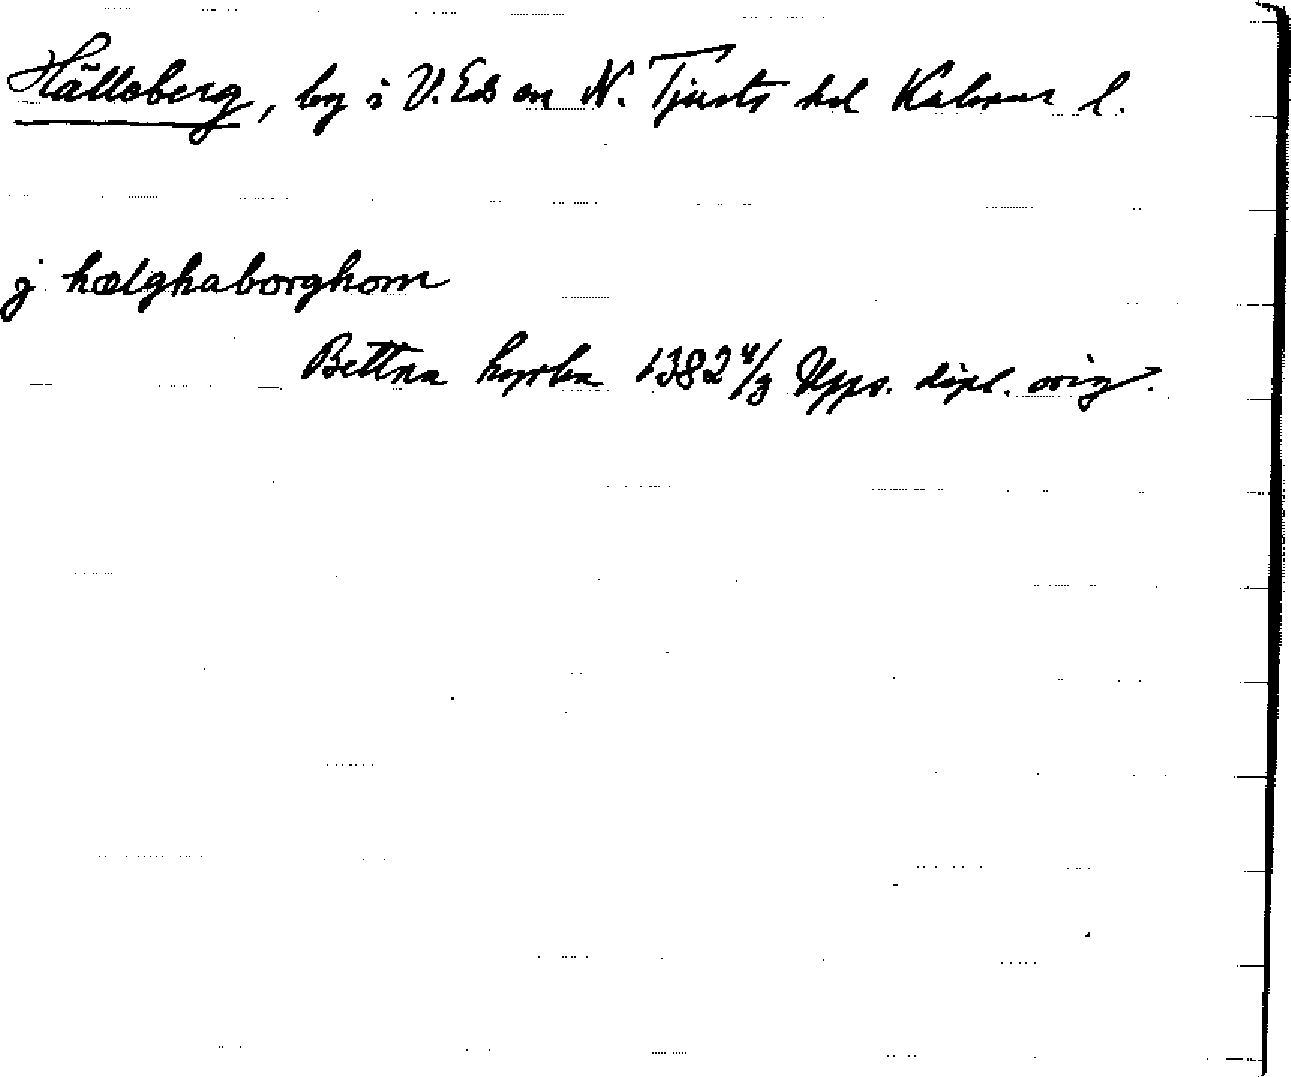 Hälleberg, by i V. Ed sn N. Tjusts hd Kalmar l.
j hælghaborghom
Bettna kyrka 1382 4/3 Upps. dipl. orig.